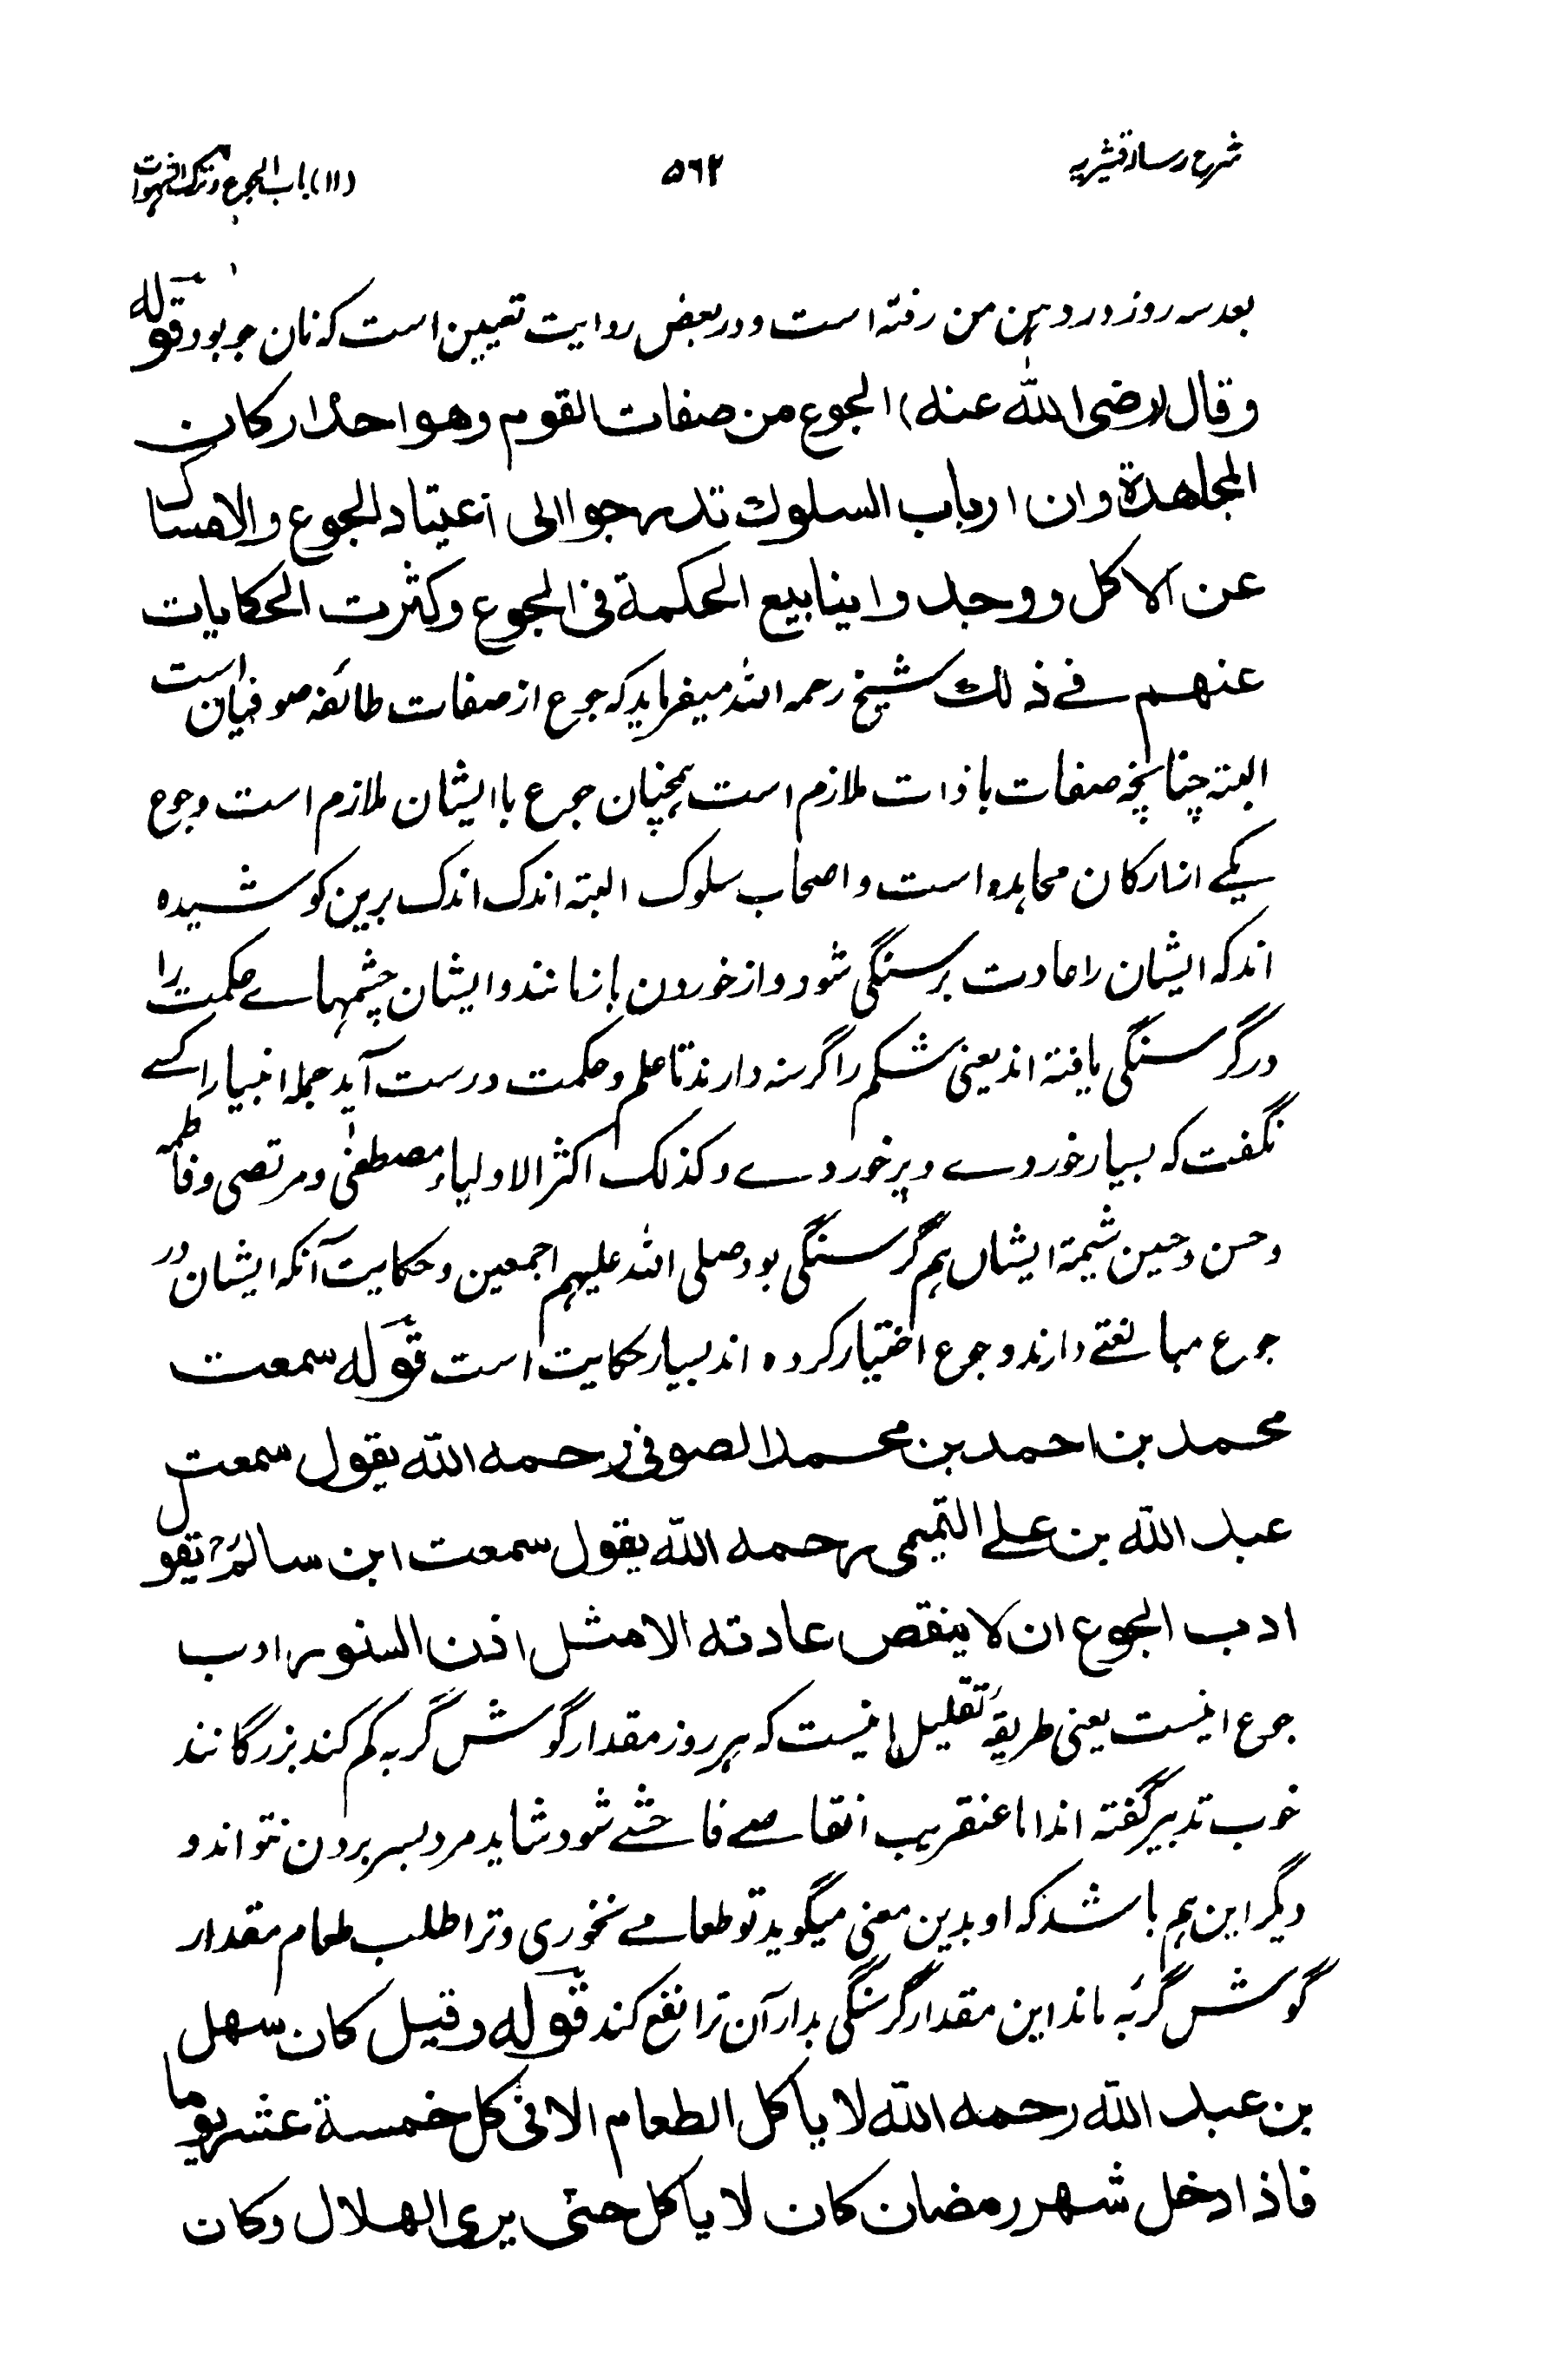 شرح رسالہ قشیریہ ۵۶۲ (۱۱) باب الجوع وترک الشہوات
بعد سہ روز در دہن من رفتہ است و در بعض روایت تعیین است کہ نان جو بود قولہ
وقال (رضی اللہ عنہ) الجوع من صفات القوم وھو احد ارکان
المجاھدة وان ارباب السلوك تدرجوا الی اعتیاد الجوع والامساك
عن الاکل ووجدوا ینابیع الحکمة فی الجوع وکثرت الحکایات
عنھم فے ذلك شیخ رحمہ اللہ میفرماید کہ جوع از صفات طائفہ صوفیان است
البتہ چنانچہ صفات با ذات ملازم است ہمچنان جوع با ایشان ملازم است وجوع
یکے از ارکان مجاہدہ است و اصحاب سلوک البتہ اندک اندک برین کوشیدہ
اند کہ ایشان را عادت برسنگی شود و از خوردن باز مانند و ایشان چشمہاے حکمت را
در گرسنگی یافتہ اند یعنی شکم را گرسنہ دارند تا علم و حکمت درست آید جملہ انبیا را کسے
نگفت کہ بسیار خوردے و پر خوردے و کذلک اکثر الاولیاء مصطفیٰ و مرتضی و فاطمہ
و حسن و حسین شیمۃ ایشاں ہم گرسنگی بود صلی اللہ علیہم اجمعین و حکایت آنکہ ایشان در
جوع مبالغتے دارند و جوع اختیار کردہ اند بسیار حکایت است قولہ سمعت
محمد بن احمد بن محمد الصوفی رحمہ اللہ یقول سمعت
عبد اللہ بن علے التمیمی رحمہ اللہ یقول سمعت ابن سالم یقول
ادب الجوع ان لا ینقص عادتہ الا مثل اذن السنور ادب
جوع اینست یعنی طریقۂ تقلیل اینست کہ ہر روز مقدار گوش گربہ کم کند بزرگانند
خوب تدبیر گفتہ اند اما عنقریب انقاصے فاحشے شود شاید مرد بسر بردن نتواند و
دیگر این ہم باشد کہ او بدین معنی میگوید تو طعامے نخوری و ترا طلب طعام مقدار
گوش گربہ ماند این مقدار گرسنگی بدار آن ترا نفع کند قولہ وقیل کان سھل
بن عبد اللہ رحمہ اللہ لا یاکل الطعام الا فی کل خمسة عشر یوما
فاذا دخل شھر رمضان کان لا یاکل حتی یری الھلال وکان